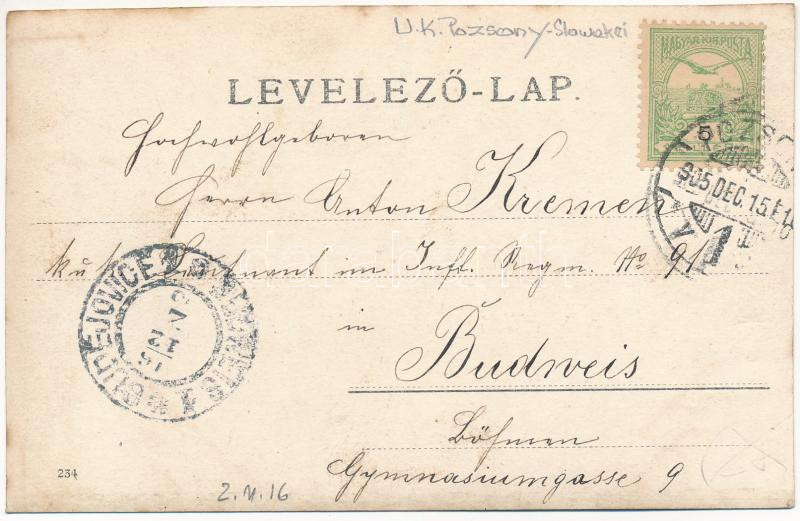 U.K. Pozsony-Slowakei
MAGYAR KIR. POSTA
5
LEVELEZŐ-LAP.
905 DEC. 15.
Hochwohlgeboren
Herrn Anton Kremen
k u k Leutnant im Inft. Regm. No 91
in
BUDĚJOVICE BUDWEIS
Budweis
Böhmen
Gymnasiumgasse 9
234
2.V.16